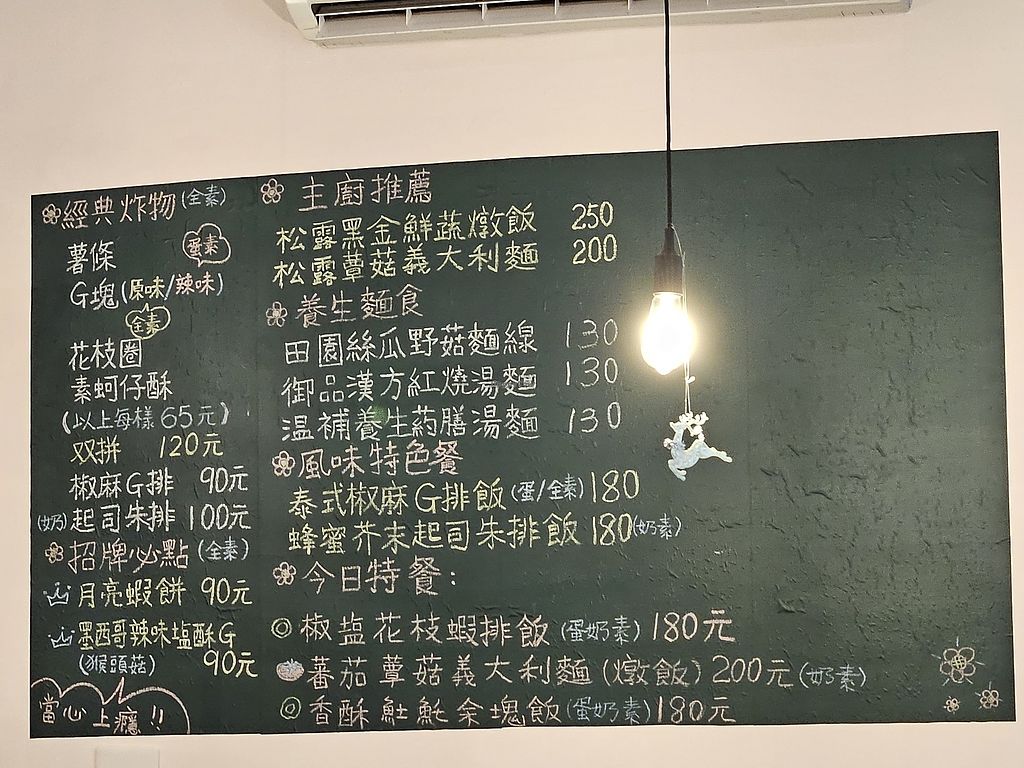 經典炸物(全素)
薯條
蛋素
G塊(原味/辣味)
全素
花枝圈
素蚵仔酥
(以上每樣65元)
双拼 120元
椒麻G排 90元
(奶)起司朱排 100元
招牌必點(全素)
月亮蝦餅 90元
墨西哥辣味塩酥G
(猴頭菇) 90元
當心上癮!!
主廚推薦
松露黑金鮮蔬燉飯 250
松露蕈菇義大利麵 200
養生麵食
田園絲瓜野菇麵線 130
御品漢方紅燒湯麵 130
温補養生药膳湯麵 130
風味特色餐
泰式椒麻G排飯(蛋/全素)180
蜂蜜芥末起司朱排飯180(奶素)
今日特餐:
椒塩花枝蝦排飯(蛋奶素)180元
蕃茄蕈菇義大利麵(燉飯)200元(奶素)
香酥魠魠朵塊飯(蛋奶素)180元